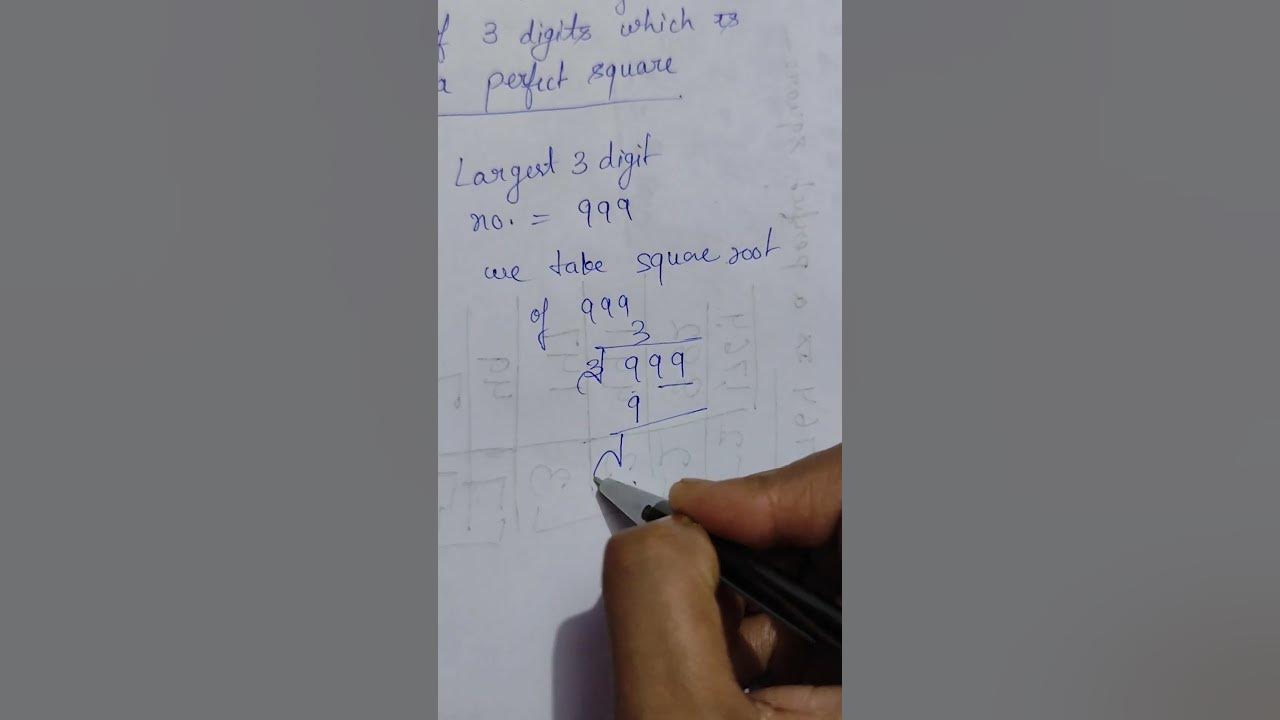 f 3 digits which is
a perfect square
Largest 3 digit
no. = 999
we take square root
of 999
3
3 999
9